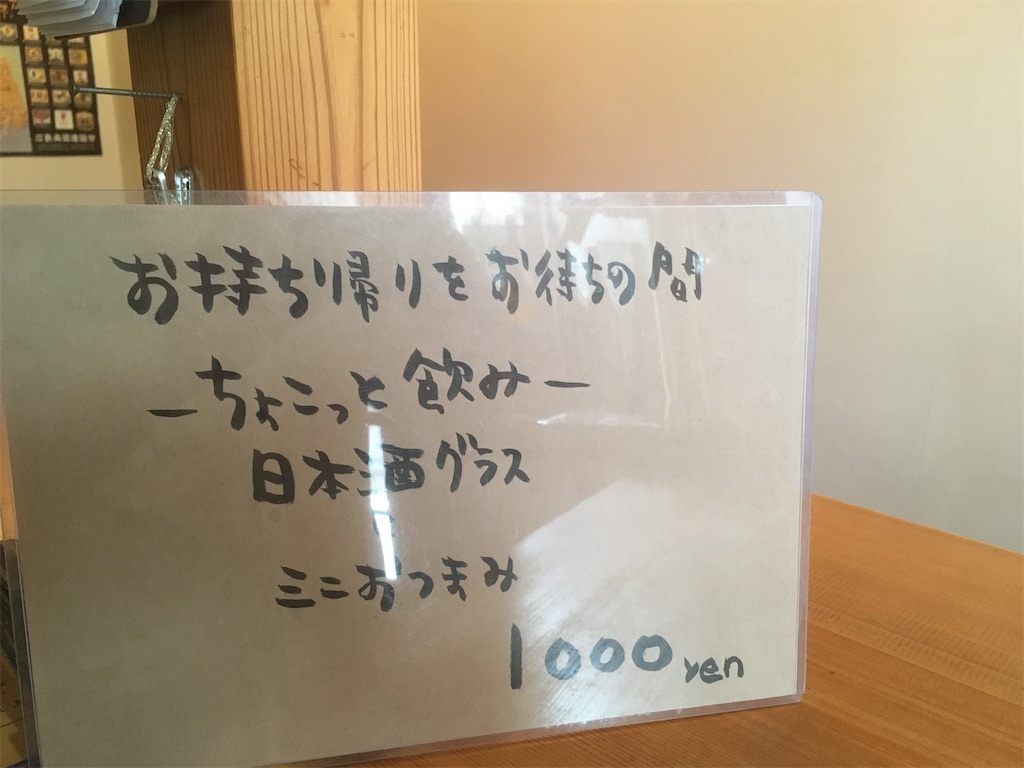 お持ち帰りをお待ちの間
ーちょこっと飲みー
日本酒グラス
ミニおつまみ
1000 yen